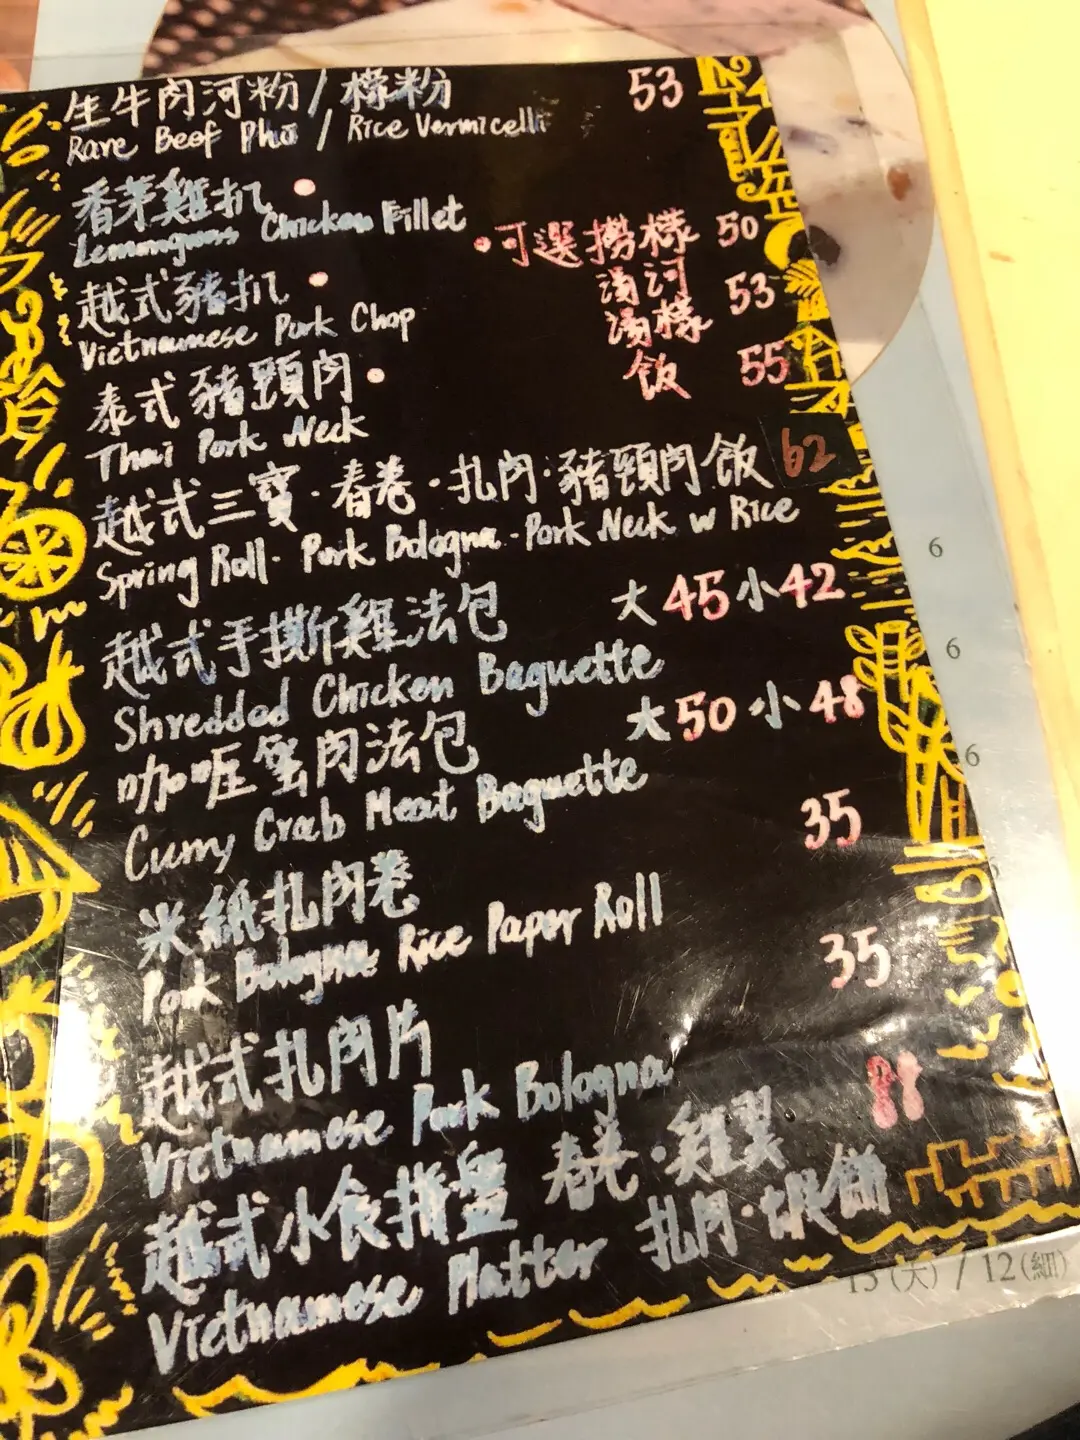 生牛肉河粉/檬粉 53
Rare Beef Pho / Rice Vermicelli
香茅雞扒 •
Lemongrass Chicken Fillet
•可選撈檬 50
越式豬扒 •
湯河
湯檬 53
Vietnamese Pork Chop
飯 55
泰式豬頸肉 •
Thai Pork Neck
越式三寶·春卷·扎肉·豬頸肉飯 62
Spring Roll · Pork Bologna · Pork Neck w Rice
越式手撕雞法包 大45 小42
Shredded Chicken Baguette
咖喱蟹肉法包 大50 小48
Curry Crab Meat Baguette
米紙扎肉卷 35
Pork Bologna Rice Paper Roll
越式扎肉片 35
Vietnamese Pork Bologna
越式小食拼盤 春卷·雞翼 88
Vietnamese Platter 扎肉·蝦餅
6
6
6
13(大) / 12(細)